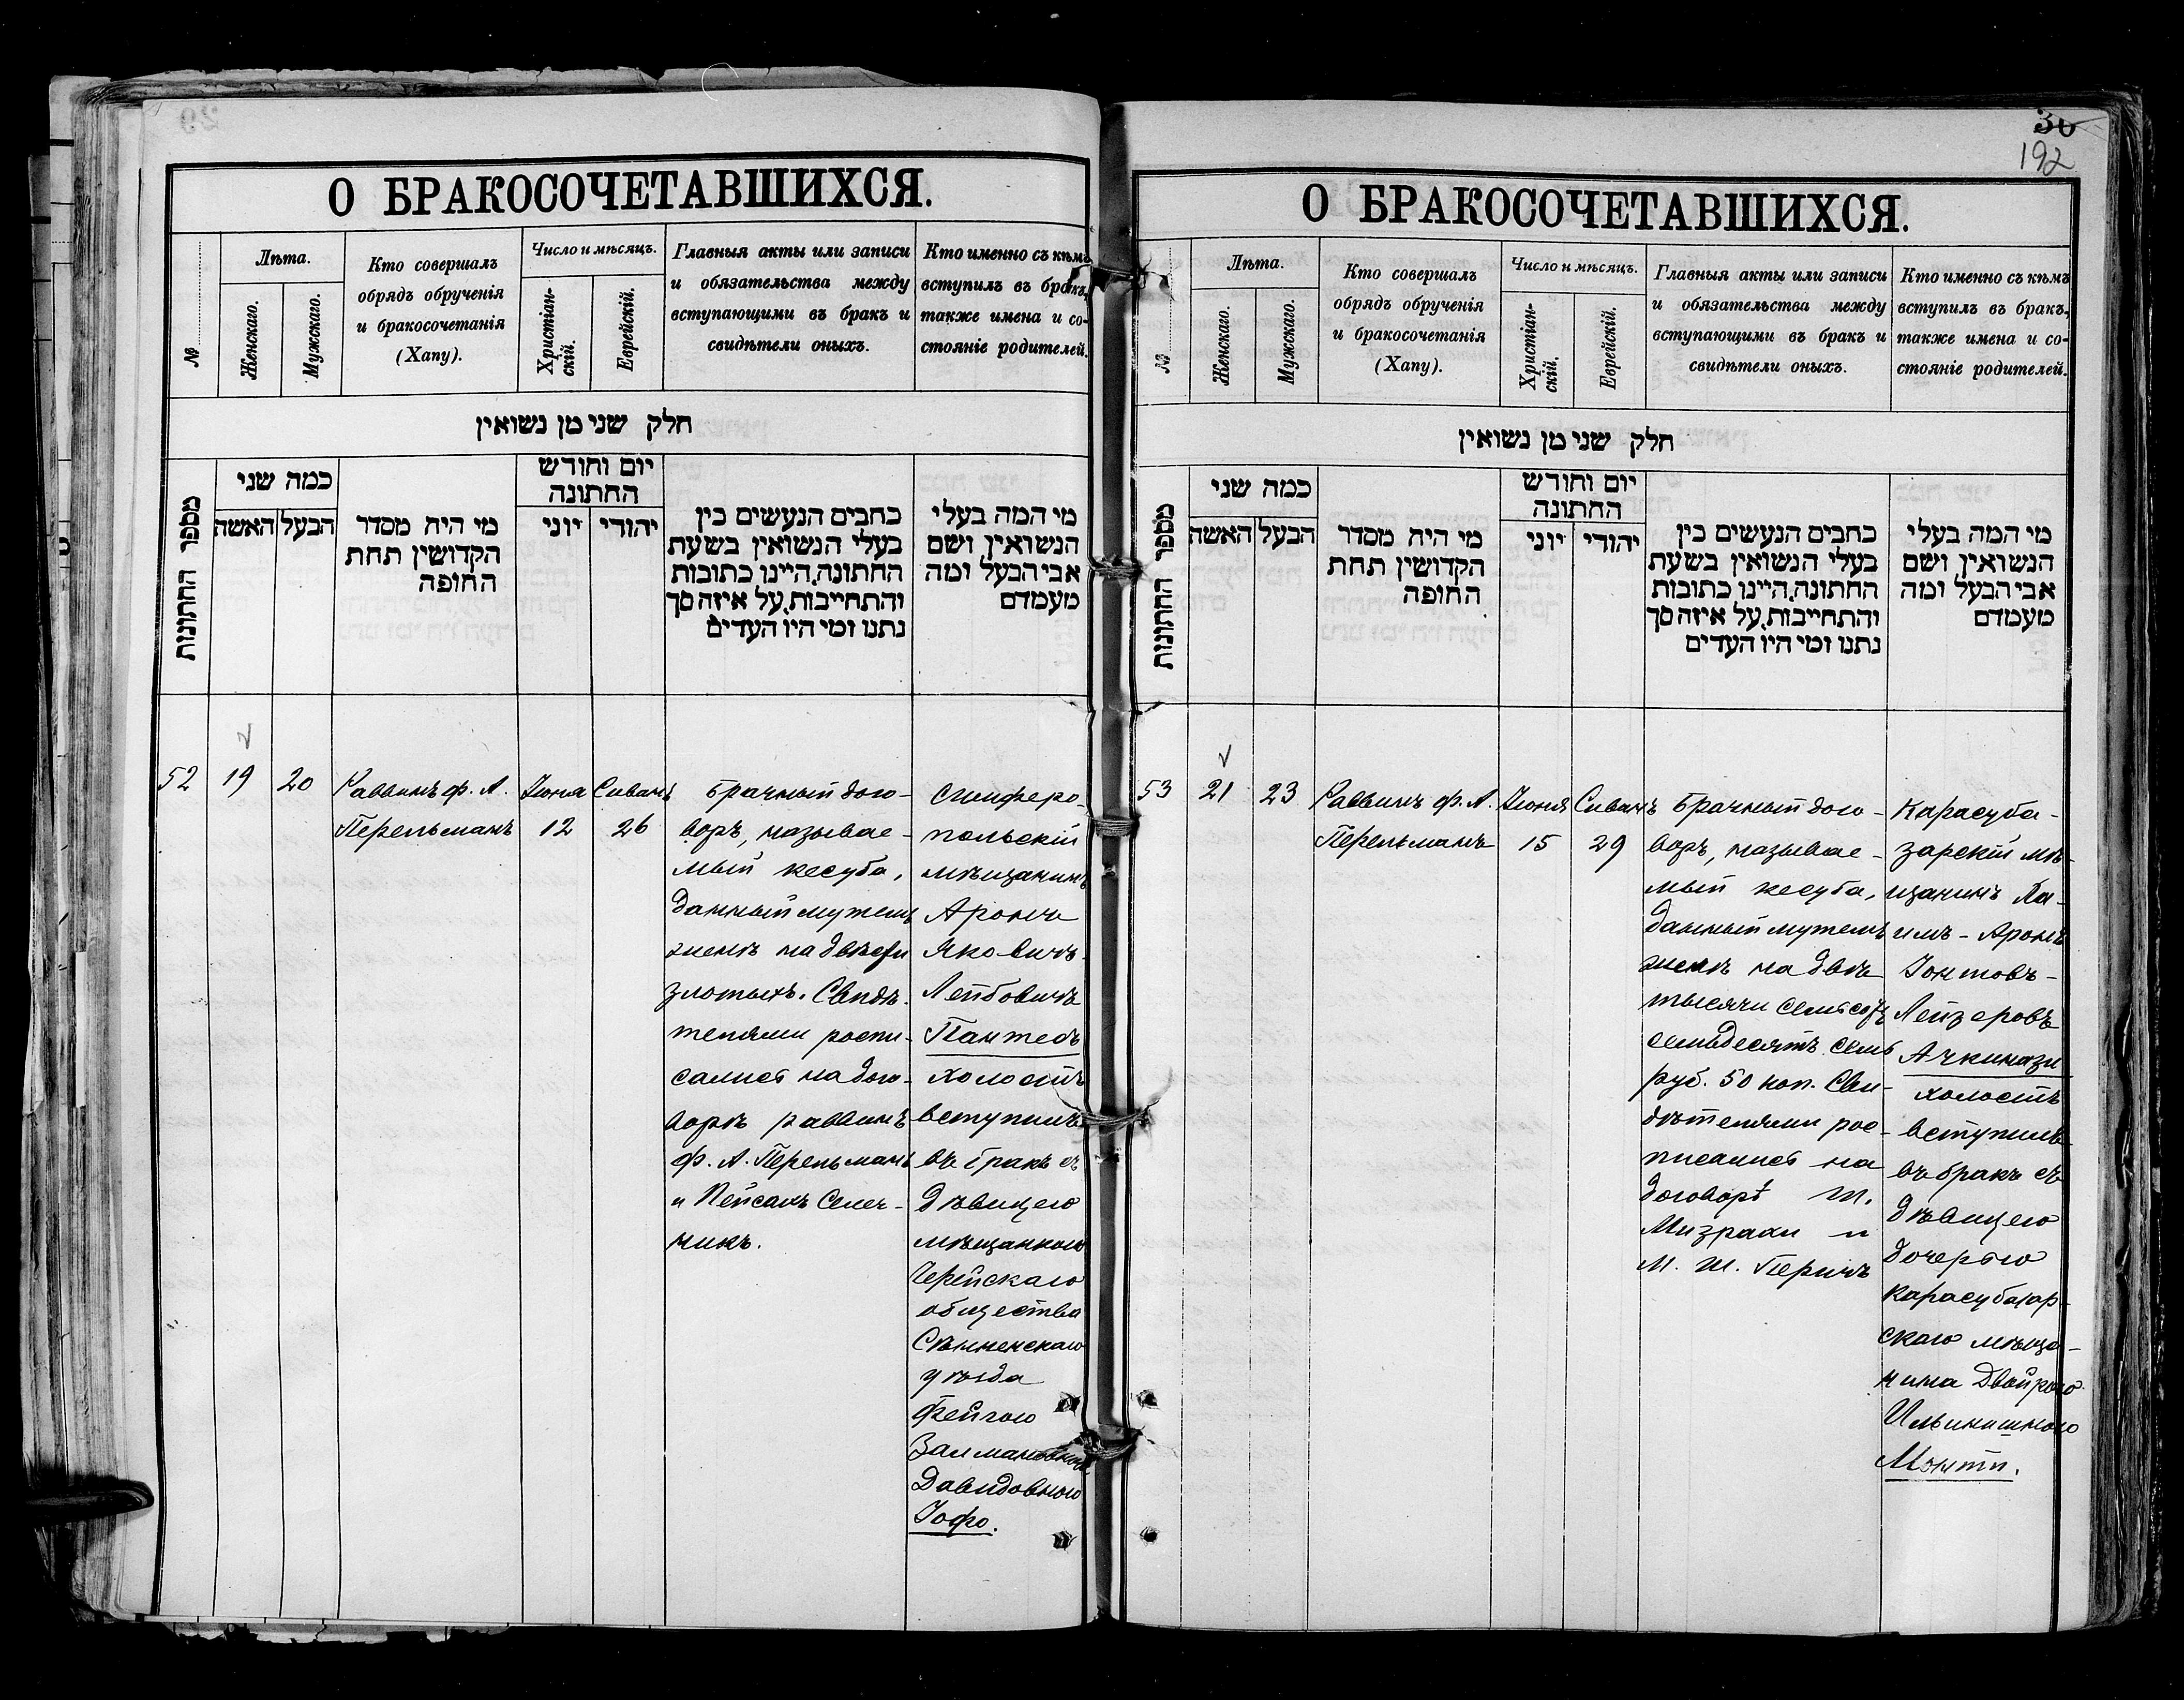 29
О БРАКОСОЧЕТАВШИХСЯ.
№
Лѣта.
Женскаго.
Мужскаго.
Кто совершалъ
обрядъ обрученія
и бракосочетанія
(Хапу).
Число и мѣсяцъ.
Христіан-
скій.
Еврейскій.
Главныя акты или записи
и обязательства между
вступающими въ бракъ и
свидѣтели оныхъ.
Кто именно съ кѣмъ
вступилъ въ бракъ,
также имена и со-
стояніе родителей.
חלק שני מן נשואין
מספר החתונות
כמה שני
האשה
הבעל
מי היה מסדר
הקדושין תחת
החופה
יום וחודש
החתונה
יוני
יהודי
כתבים הנעשים בין
בעלי הנשואין בשעת
החתונה, היינו כתובות
והתחייבות, על איזה סך
נתנו ומי היו העדים
מי המה בעלי
הנשואין ושם
אבי הבעל ומה
מעמדם
52
19
20
Раввинъ ф. А.
Перельманъ
Іюня
12
Сиванъ
26
Брачный дого-
воръ, называе-
мый кесуба,
данный мужемъ
женѣ на двѣсти
злотыхъ. Свидѣ-
телями роспи-
сались на дого-
ворѣ раввинъ
ф. А. Перельманъ
и Пейсахъ Селеч-
никъ.
Симферо-
польскій
мѣщанинъ
Аронъ
Яковичъ
Лейбовичъ
Пантелъ
холостъ
вступилъ
въ бракъ съ
дѣвицею
мѣщанкою
Черейскаго
общества
Сѣнненскаго
уѣзда
Фейгою
Залмановною
Давидовною
Іофо.
30
192
О БРАКОСОЧЕТАВШИХСЯ.
№
Лѣта.
Женскаго.
Мужскаго.
Кто совершалъ
обрядъ обрученія
и бракосочетанія
(Хапу).
Число и мѣсяцъ.
Христіан-
скій.
Еврейскій.
Главныя акты или записи
и обязательства между
вступающими въ бракъ и
свидѣтели оныхъ.
Кто именно съ кѣмъ
вступилъ въ бракъ,
также имена и со-
стояніе родителей.
חלק שני מן נשואין
מספר החתונות
כמה שני
האשה
הבעל
מי היה מסדר
הקדושין תחת
החופה
יום וחודש
החתונה
יוני
יהודי
כתבים הנעשים בין
בעלי הנשואין בשעת
החתונה, היינו כתובות
והתחייבות, על איזה סך
נתנו ומי היו העדים
מי המה בעלי
הנשואין ושם
אבי הבעל ומה
מעמדם
53
21
23
Раввинъ ф. А.
Перельманъ
Іюня
15
Сиванъ
29
Брачный дого-
воръ, называе-
мый кесуба,
данный мужемъ
женѣ на двѣ
тысячи семьсотъ
семьдесятъ семь
руб. 50 коп. Сви-
дѣтелями рос-
писались на
договорѣ Ш.
Мизрахи и
М. Ш. Перичъ
Карасуба-
зарскій мѣ-
щанинъ Ха-
имъ-Аронъ
Іомтовъ-
Лейзеровъ
Ачкинази
холостъ
вступилъ
въ бракъ съ
дѣвицею
дочерью
карасубазар-
скаго мѣща-
нина Двойрою
Ильинишною
Монти.